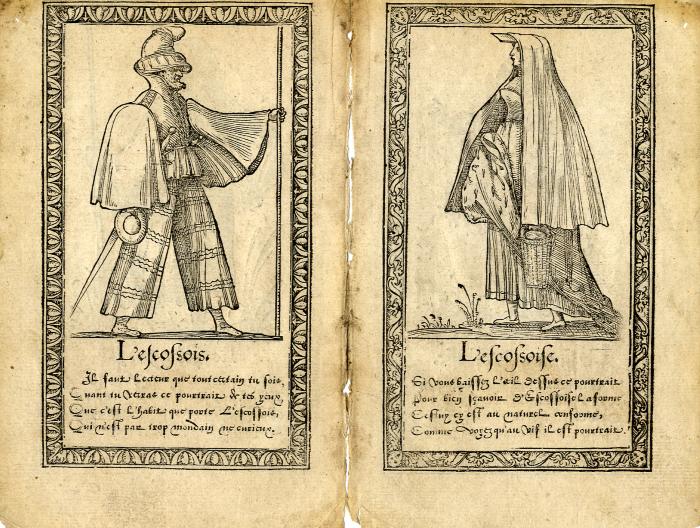 L'escossois.
Il faut Lecteur que tout certain tu sois,
Quant tu verras ce pourtrait de tes yeux,
Que c'est l'habit que porte L'escossois,
Qui n'est par trop mondain ne curieux.
L'escossoise.
Si vous baissez l'œil dessus ce pourtrait
Pour bien sçavoir d'Escossoise la forme
Cestuy cy est au naturel conforme,
Comme voyez qu'au vif il est pourtrait.